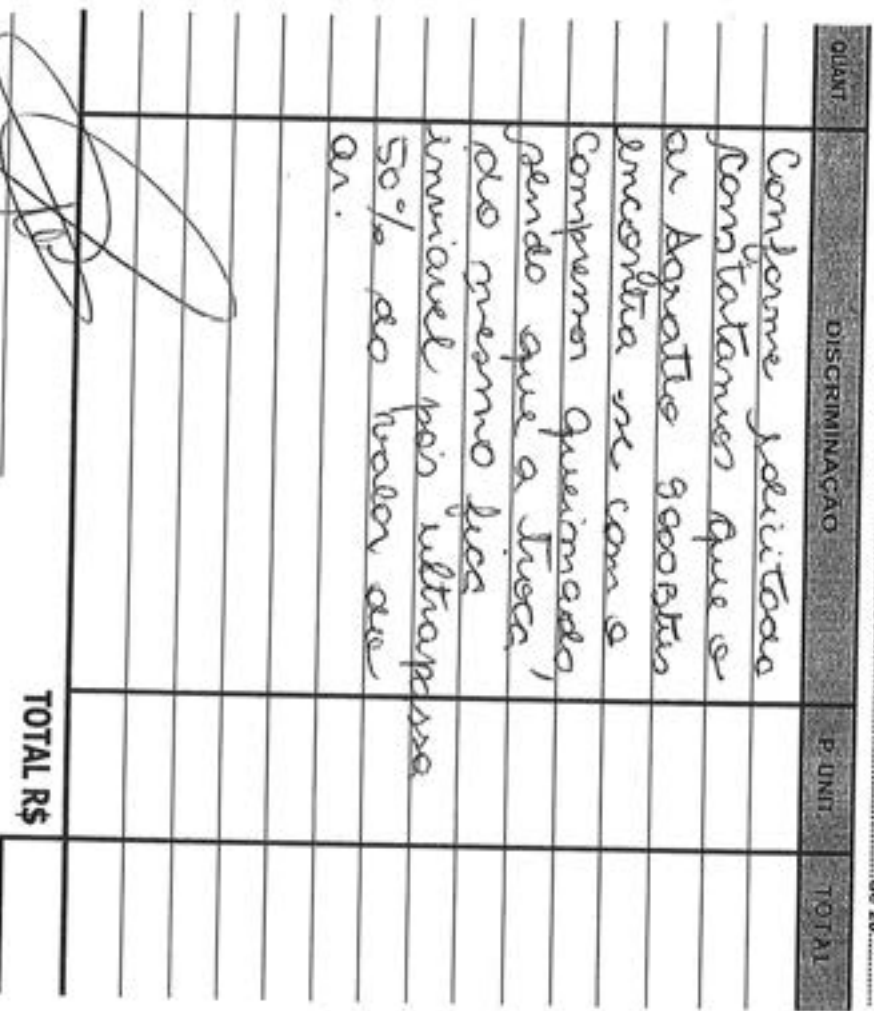 de 20
QUANT. DISCRIMINAÇÃO P. UNIT. TOTAL
Conforme solicitado
constatamos que o
ar Agratto 9000Btus
encontra-se com o
Compressor queimado
sendo que a troca
do mesmo fica
inviavel pois ultrapassa
50% do valor do
ar.
TOTAL R$